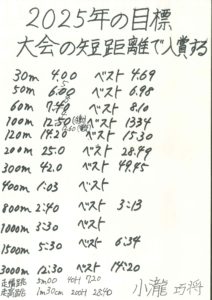 2025年の目標
大会の短距離で入賞する
30m 4.00 ベスト 4.69
50m 6.00 ベスト 6.98
60m 7.40 ベスト 8.10
100m 12.50 ベスト 13.34
120m 14.20 ベスト 15.30
200m 25.0 ベスト 28.49
300m 42.0 ベスト 49.45
400m 1:03 ベスト
800m 2:40 ベスト 3:13
1000m 3:30 ベスト
1500m 5:30 ベスト 6:34
3000m 12:30 ベスト 14:20
走幅跳 5m00 40H 7.20
走高跳 1m30cm 200H 28.40
小瀧 巧将